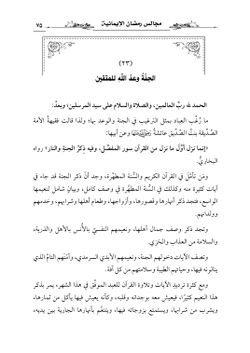 مجالس رمضان الإيمانية
٧٥
(٢٣)
الجنَّةُ وعدُ اللَّه للمتَّقين
الحمد لله ربِّ العالمين، والصلاة والسلام على سيد المرسلين؛ وبعدُ:
ما رُغِّب العباد بمثل التَّرغيب في الجنة والوعد بها؛ ولذا قالت فقيهةُ الأمة
الصِّدِّيقة بنتُ الصِّدِّيق عائشةُ وعن أبيها:
«إنما نزل أوَّلَ ما نزل من القرآن سور المفصَّل، وفيه ذِكرُ الجنةِ والنار» رواه
البخاريُّ.
ومَن تأمَّل في القرآن الكريم والسُّنة المطهَّرة، وجد أنَّ ذكر الجنة قد جاء في
آيات كثيرة منه وكذلك في السُّنة المطهَّرة في وصف كامل، وبيانٍ شامل لنعيمها
الواسع، فتجد ذكر أنهارها وقصورها، وأزواجها، وطعام أهلها وشرابهم، وخدمهم
وولدانهم.
وتجد ذكر وصف جمال أهلها، ونعيمهم النفسيِّ بالأُنس بالأهل والذرية،
والسلامة من العذاب والخزي.
وتصف الآيات دخولهم الجنة، ونعيمهم الأبدي السرمدي، وأمْنَهم التامَّ الذي
ينالونه فيها، وحياتهم الطيبة وسلامتهم من كل آفة.
ومع كثرة ترديد الآيات وتلاوة القرآن للعبد الموفَّق في هذا الشهر، يمر بذكر
هذا النعيم كثيرًا، فيعيش معه بوجدانه وقلبه، وكأنه يعيش فيها يأكل من ثمارها،
ويشرب من شرابها، ويستمتع بزوجاته فيها، ويتنعَّم بأنهارها الجارية بين يديه،